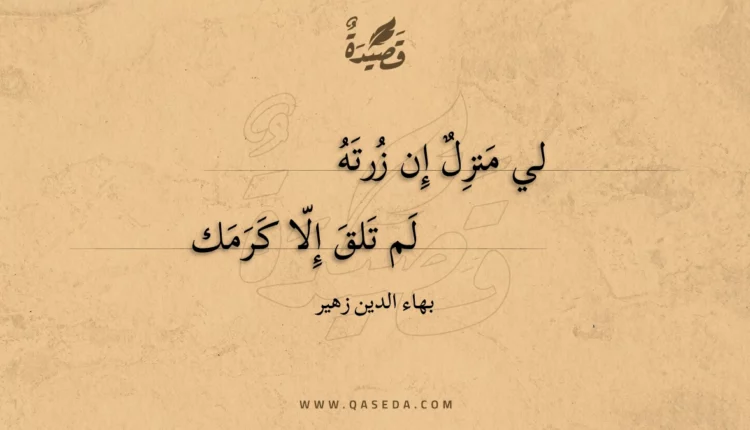 قَصِيْدَةٌ
لي مَنزِلٌ إِن زُرتَهُ
لَم تَلقَ إِلّا كَرَمَك
بهاء الدين زهير
WWW.QASEDA.COM